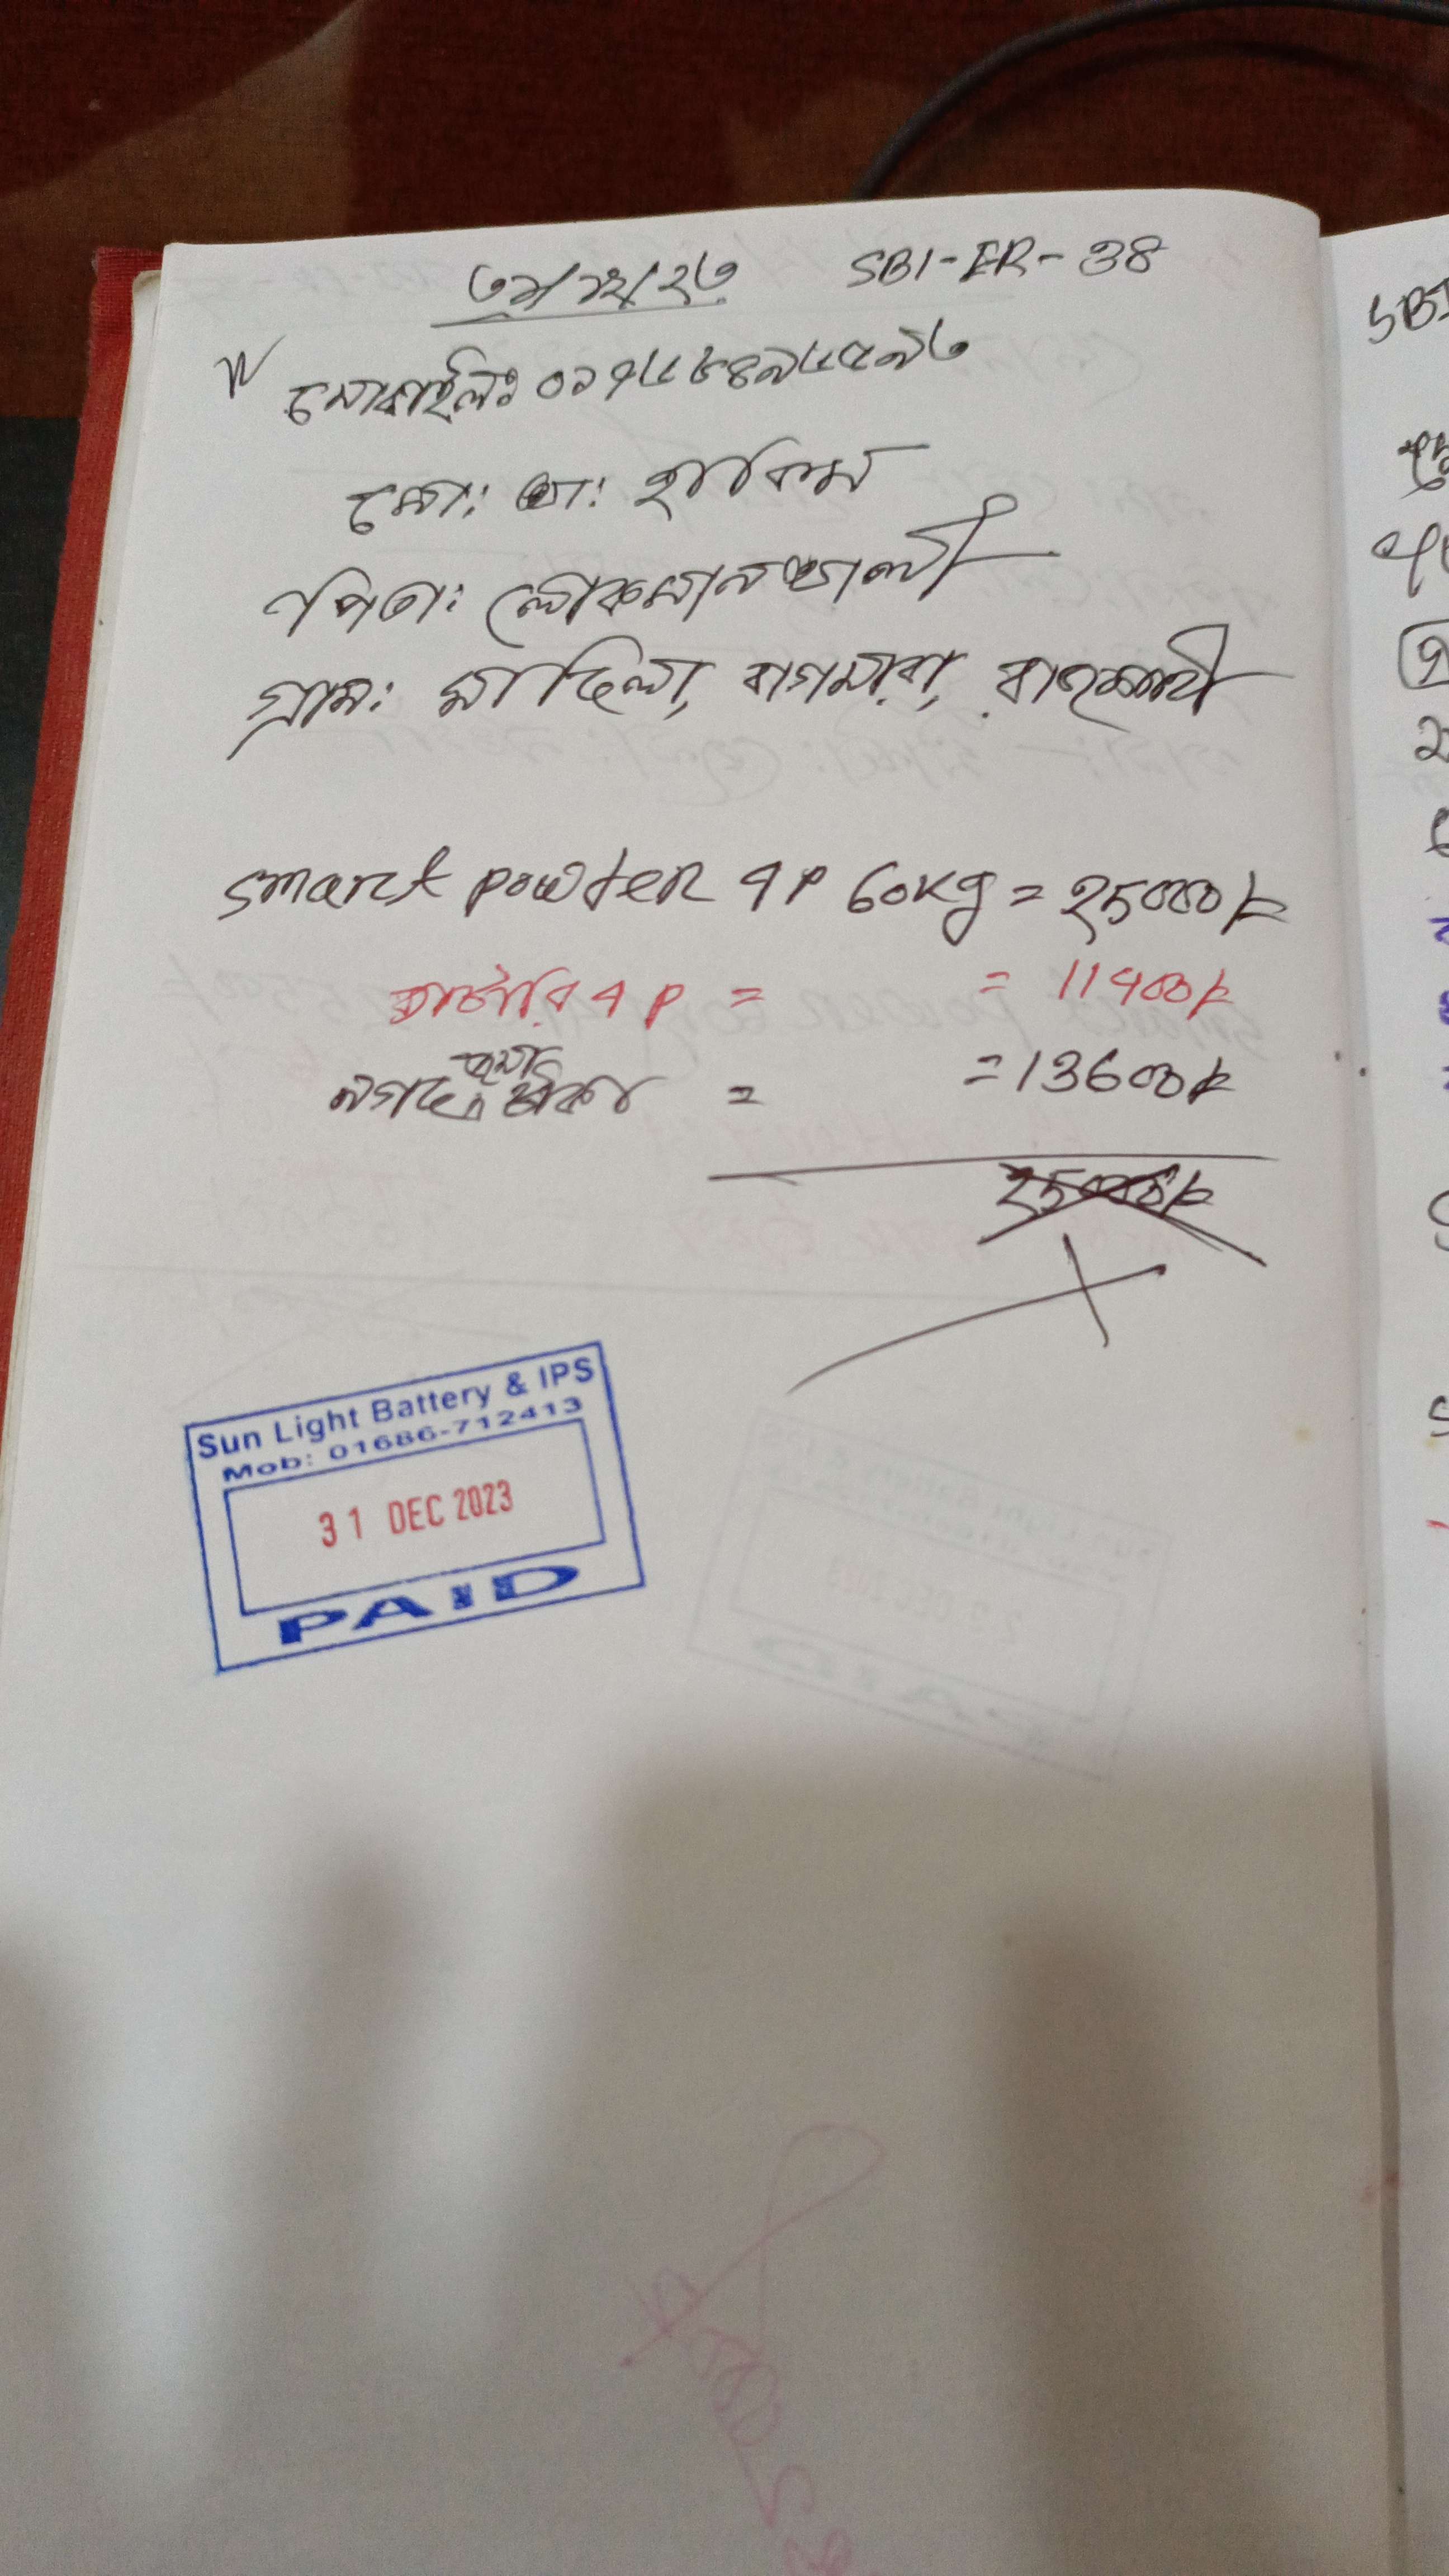 ৩১/১২/২৩ SBI-ER-38
মোবাইলঃ ০১৭৮৮৪৯৮৫৯৩
মো: আ: হাকিম
পিতা: লোকমান আলী
গ্রাম: মাদিলা, বাগমারা, রাজশাহী
smart powder 4P 60kg = 25000৳
ব্যাটারি 4P = = 11400৳
নগদ জমা টাকা = = 13600৳
25000৳
Sun Light Battery & IPS
Mob: 01686-712413
31 DEC 2023
PAID
SBI